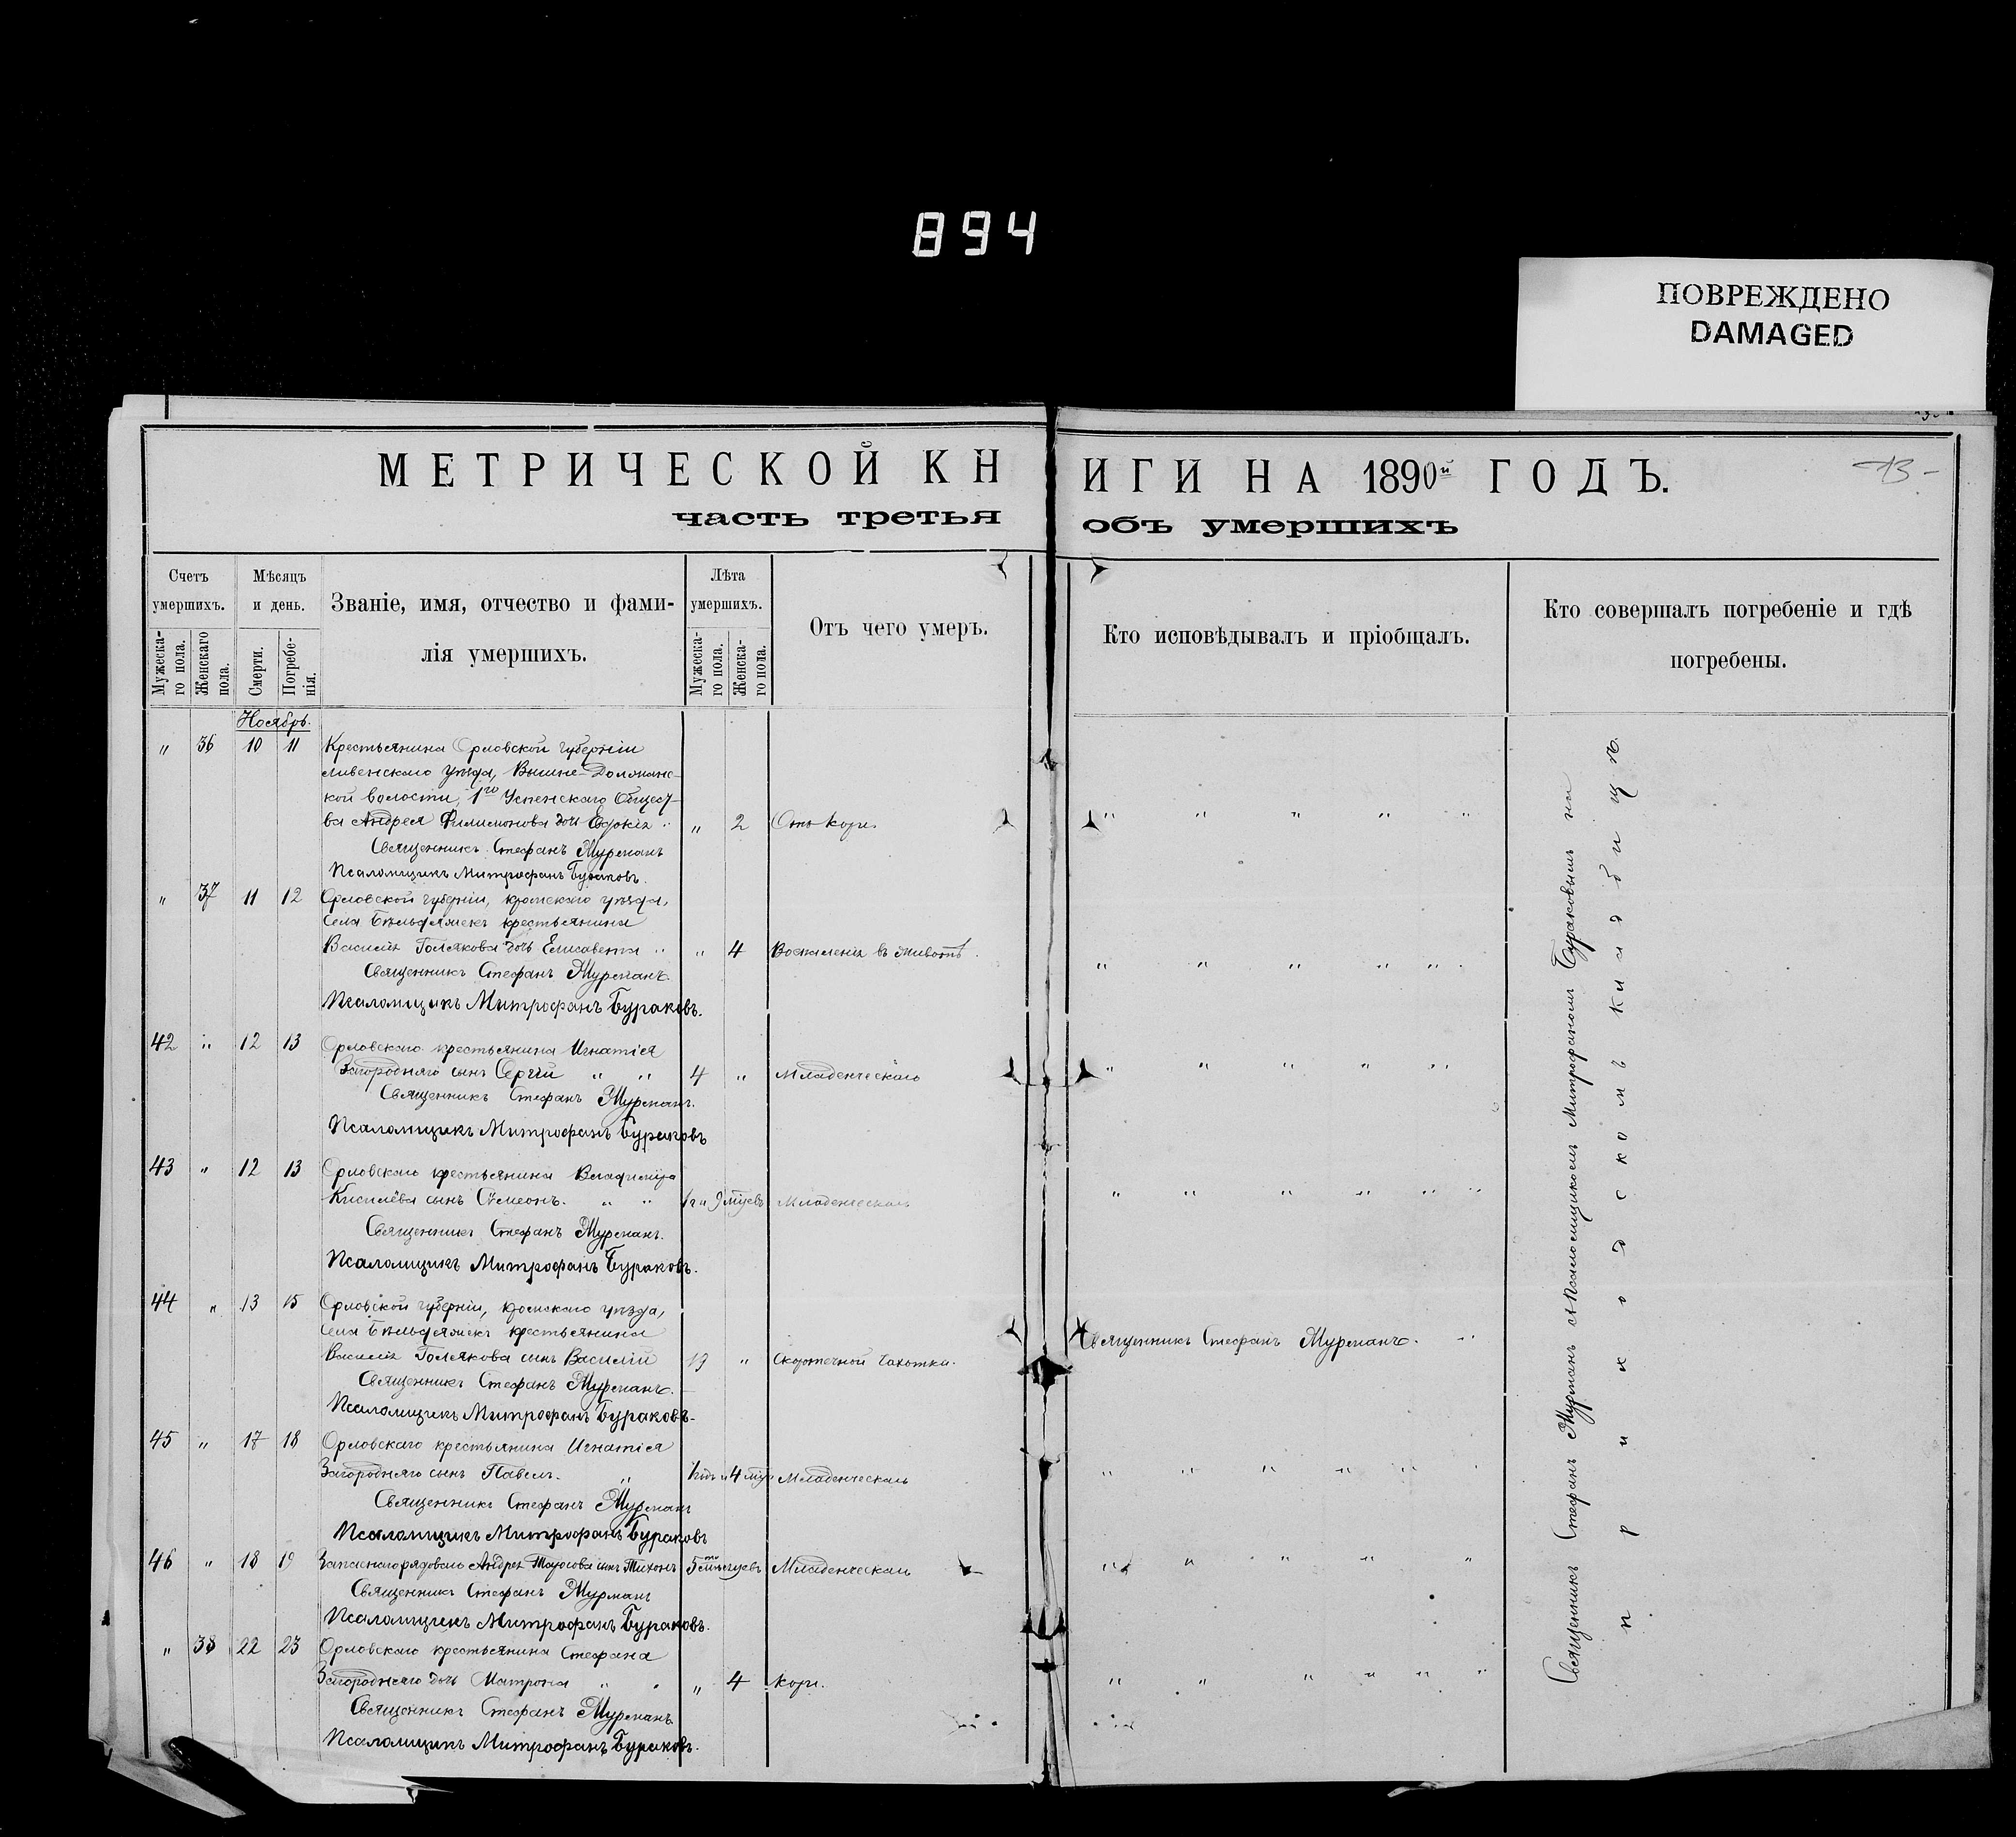 894
ПОВРЕЖДЕНО
DAMAGED
МЕТРИЧЕСКОЙ КНИГИ НА 1890й ГОДЪ.
13
часть третья объ умершихъ
Счетъ умершихъ.
Мужеска-го пола.
Женскаго пола.
Мѣсяцъ и день.
Смерти.
Погребе-нія.
Званіе, имя, отчество и фами-
лія умершихъ.
Лѣта умершихъ.
Мужеска-го пола.
Женска-го пола.
Отъ чего умеръ.
Кто исповѣдывалъ и пріобщалъ.
Кто совершалъ погребеніе и гдѣ
погребены.
Ноябрь.
" 36 10 11 Крестьянина Орловской губерніи
Ливенскаго уѣзда, Вышне-Должанс-
кой волости, 1го Успенскаго Общест-
ва Андрея Филимонова дочь Евдокія " " 2 Отъ кори. " " " " "
Священникъ Стефанъ Мурманъ
Псаломщикъ Митрофанъ Бураковъ.
" 37 11 12 Орловской губерніи, кромскаго уѣзда,
села Бѣльдяжекъ крестьянина
Василія Голякова дочь Елисавета " " 4 Воспаленія въ животѣ. " " " " "
Священникъ Стефанъ Мурманъ
Псаломщикъ Митрофанъ Бураковъ.
42 " 12 13 Орловскаго крестьянина Игнатія
Загородняго сынъ Сергій " " 4 " Младенческаго " " " " "
Священникъ Стефанъ Мурманъ.
Псаломщикъ Митрофанъ Бураковъ
43 " 12 13 Орловскаго крестьянина Владиміра
Киселёва сынъ Сѵмеонъ. " " 1 г. и 9 мцевъ Младенческаго " " " " " "
Священникъ Стефанъ Мурманъ.
Псаломщикъ Митрофанъ Бураковъ.
44 " 13 15 Орловской губерніи, кромскаго уѣзда,
села Бѣльдяжекъ крестьянина
Василія Голякова сынъ Василій 19 " Скоротечной чахотки. Священникъ Стефанъ Мурманъ. "
Священникъ Стефанъ Мурманъ.
Псаломщикъ Митрофанъ Бураковъ.
45 " 17 18 Орловскаго крестьянина Игнатія
Загородняго сынъ Павелъ. " 1 годъ и 4 мцъ Младенческаго " " " " " "
Священникъ Стефанъ Мурманъ
Псаломщикъ Митрофанъ Бураковъ
46 " 18 19 Запаснаго рядоваго Андрея сынъ Тихонъ 5ти мцевъ Младенческаго " " " " "
Священникъ Стефанъ Мурманъ
Псаломщикъ Митрофанъ Бураковъ.
" 38 22 23 Орловскаго крестьянина Стефана
Загородняго дочь Матрона " " " 4 Кори. " " " " " "
Священникъ Стефанъ Мурманъ
Псаломщикъ Митрофанъ Бураковъ.
Священникъ Стефанъ Мурманъ съ Псаломщикомъ Митрофаномъ Бураковымъ на
приходскомъ кладбищѣ.